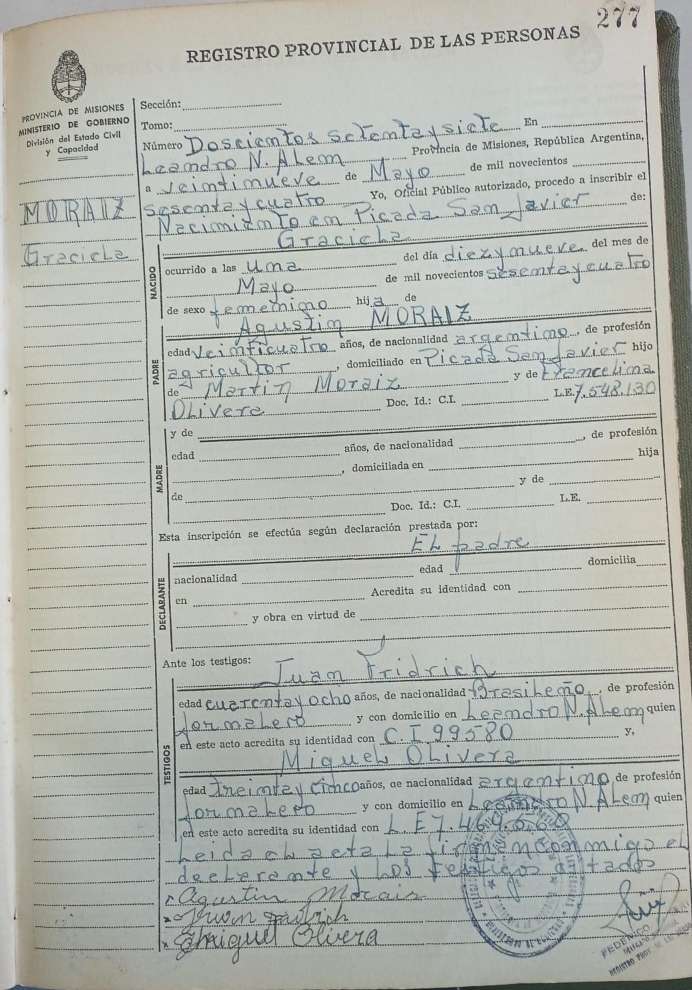 277
REGISTRO PROVINCIAL DE LAS PERSONAS
PROVINCIA DE MISIONES
MINISTERIO DE GOBIERNO
División del Estado Civil
y Capacidad
MORAIZ
Graciela
Sección:
Tomo:
Número Doscientos setenta y siete En
Leandro N. Alem Provincia de Misiones, República Argentina,
a veintinueve de Mayo de mil novecientos
sesenta y cuatro Yo, Oficial Público autorizado, procedo a inscribir el
Nacimiento en Picada San Javier de:
Graciela
NACIDO
ocurrido a las una del día diez y nueve del mes de
Mayo de mil novecientos sesenta y cuatro
de sexo femenino hija de
Agustin MORAIZ
PADRE
edad veinticuatro años, de nacionalidad argentino, de profesión
agricultor, domiciliado en Picada San Javier hijo
de Martin Moraiz y de Francelina
Olivera Doc. Id.: C.I. L.E. 7.548.130
MADRE
y de
edad años, de nacionalidad, de profesión
, domiciliada en hija
de y de
Doc. Id.: C.I. L.E.
Esta inscripción se efectúa según declaración prestada por:
El padre
DECLARANTE
nacionalidad edad domicilia
en Acredita su identidad con
y obra en virtud de
Ante los testigos:
Juan Fridrich
TESTIGOS
edad cuarenta y ocho años, de nacionalidad Brasileño, de profesión
jornalero y con domicilio en Leandro N. Alem quien
en este acto acredita su identidad con C.I 99580 y,
Miguel Olivera
edad treinta y cinco años, de nacionalidad argentino de profesión
jornalero y con domicilio en Leandro N. Alem quien
en este acto acredita su identidad con L.E 7.469.
Leida el acta la firman conmigo el
declarante y los testigos citados
Agustin Morais
Olivera
FEDERICO